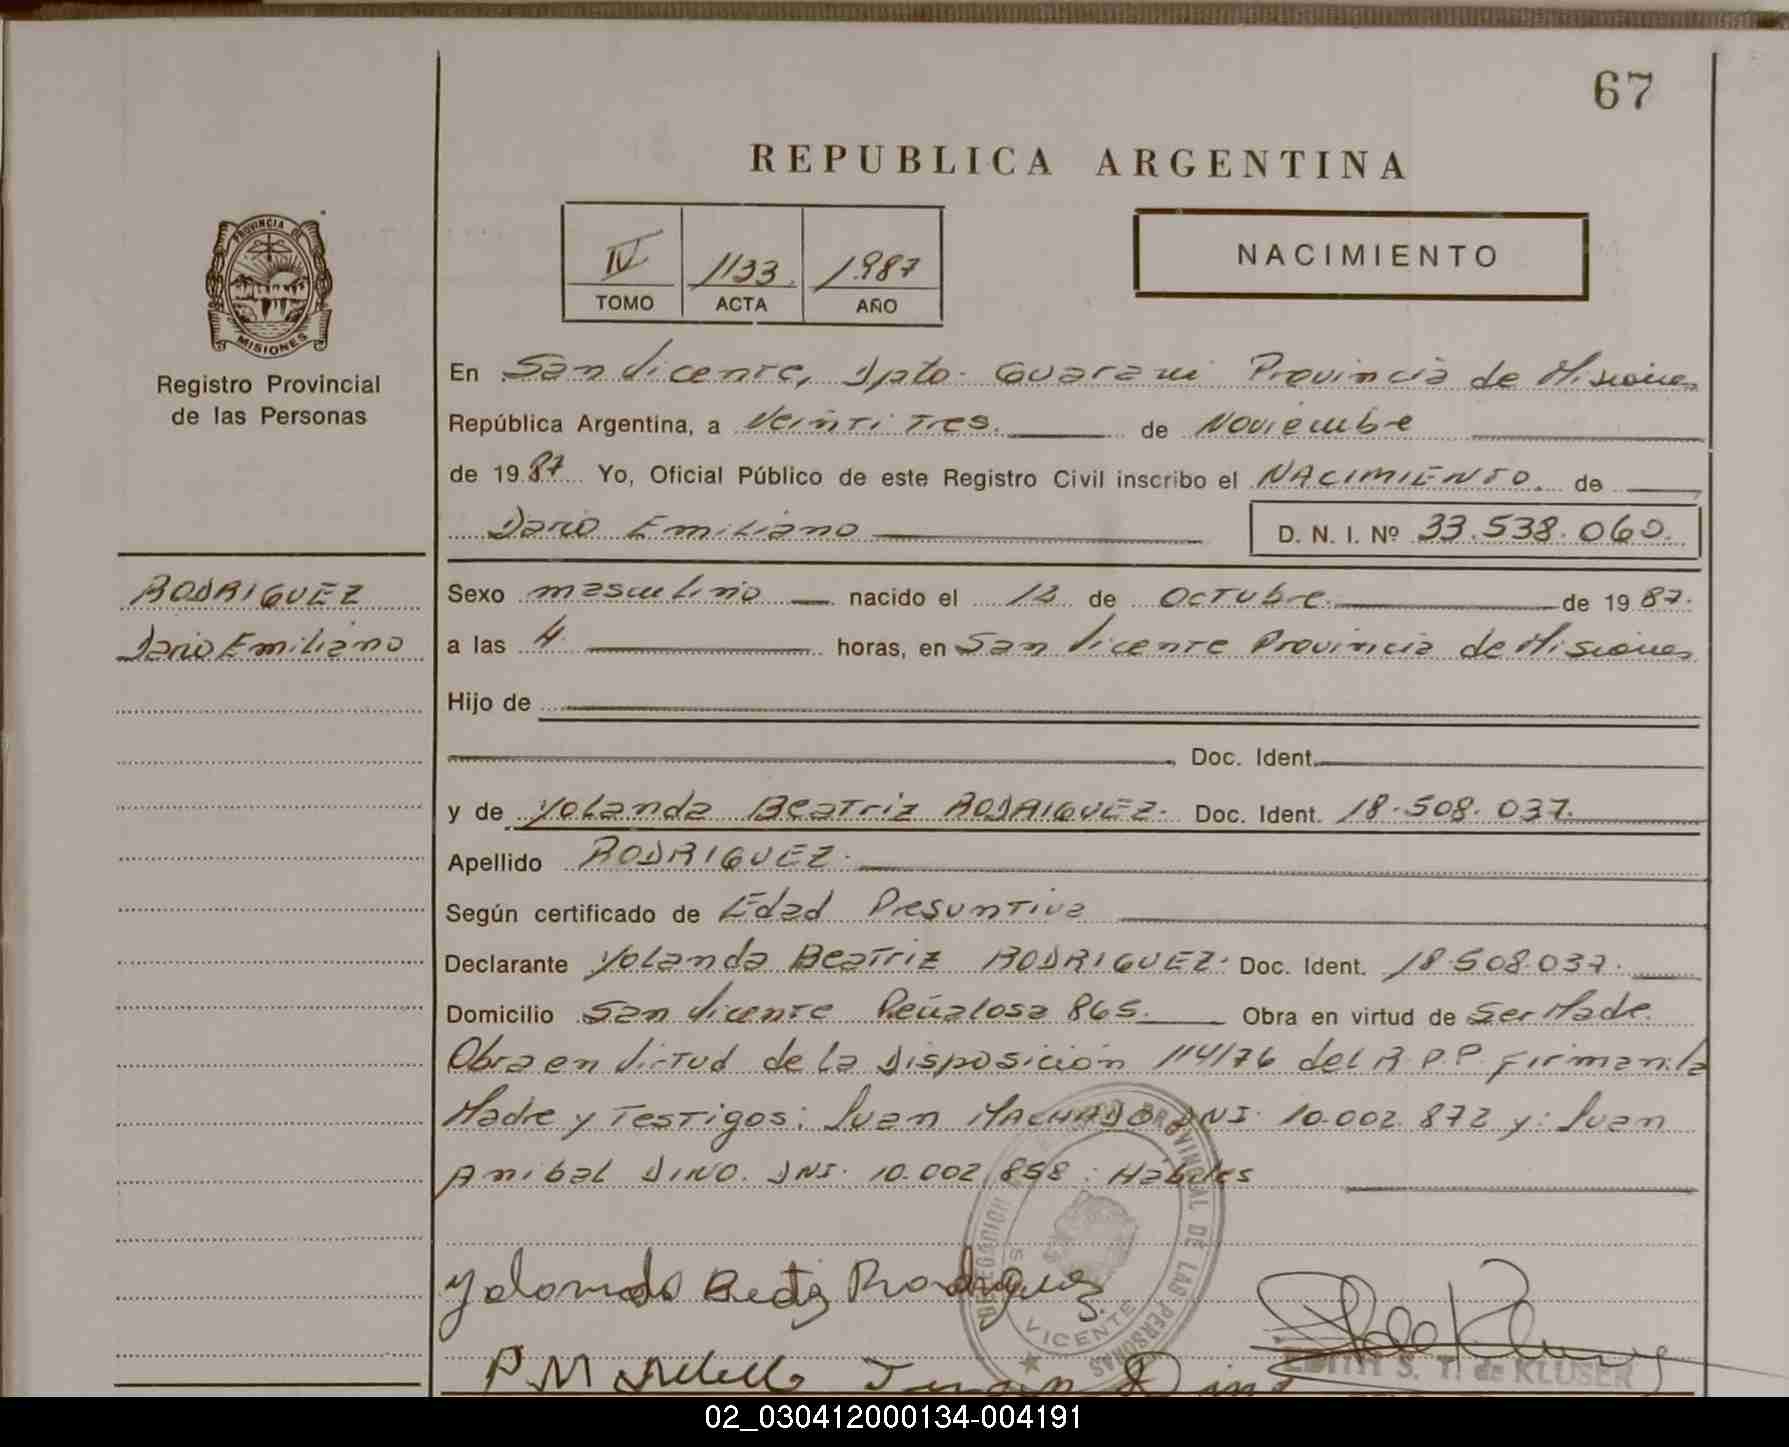 67
REPUBLICA ARGENTINA
IV 1133. 1987
TOMO ACTA AÑO
NACIMIENTO
PROVINCIA DE
MISIONES
Registro Provincial
de las Personas
En San Vicente, Dpto. Guarani Provincia de Misiones
República Argentina, a Veinti Tres. de Noviembre
de 1987 Yo, Oficial Público de este Registro Civil inscribo el NACIMIENTO. de
Dario Emiliano D. N. I. Nº 33.538.060.
RODRIGUEZ
Dario Emiliano
Sexo masculino nacido el de Octubre de 1987.
a las 4 horas, en San Vicente Provincia de Misiones
Hijo de
Doc. Ident.
y de Yolanda Beatriz RODRIGUEZ. Doc. Ident. 18.508.037.
Apellido RODRIGUEZ.
Según certificado de Edad Presuntiva
Declarante Yolanda Beatriz RODRIGUEZ. Doc. Ident. 18.508.037.
Domicilio San Vicente Peñalosa 865. Obra en virtud de Ser Madre.
Obra en Virtud de la Disposición 114/76 del R.P.P. firman: la
Madre y Testigos: Juan MACHADO DNI. 10.002.872 y: Juan
Anibal DINO. DNI. 10.002.858: Habiles
PROVINCIAL DE LAS PERSONAS
VICENTE
Yolanda Rodriguez
EDITH S. T. de KLUSER
02_030412000134-004191